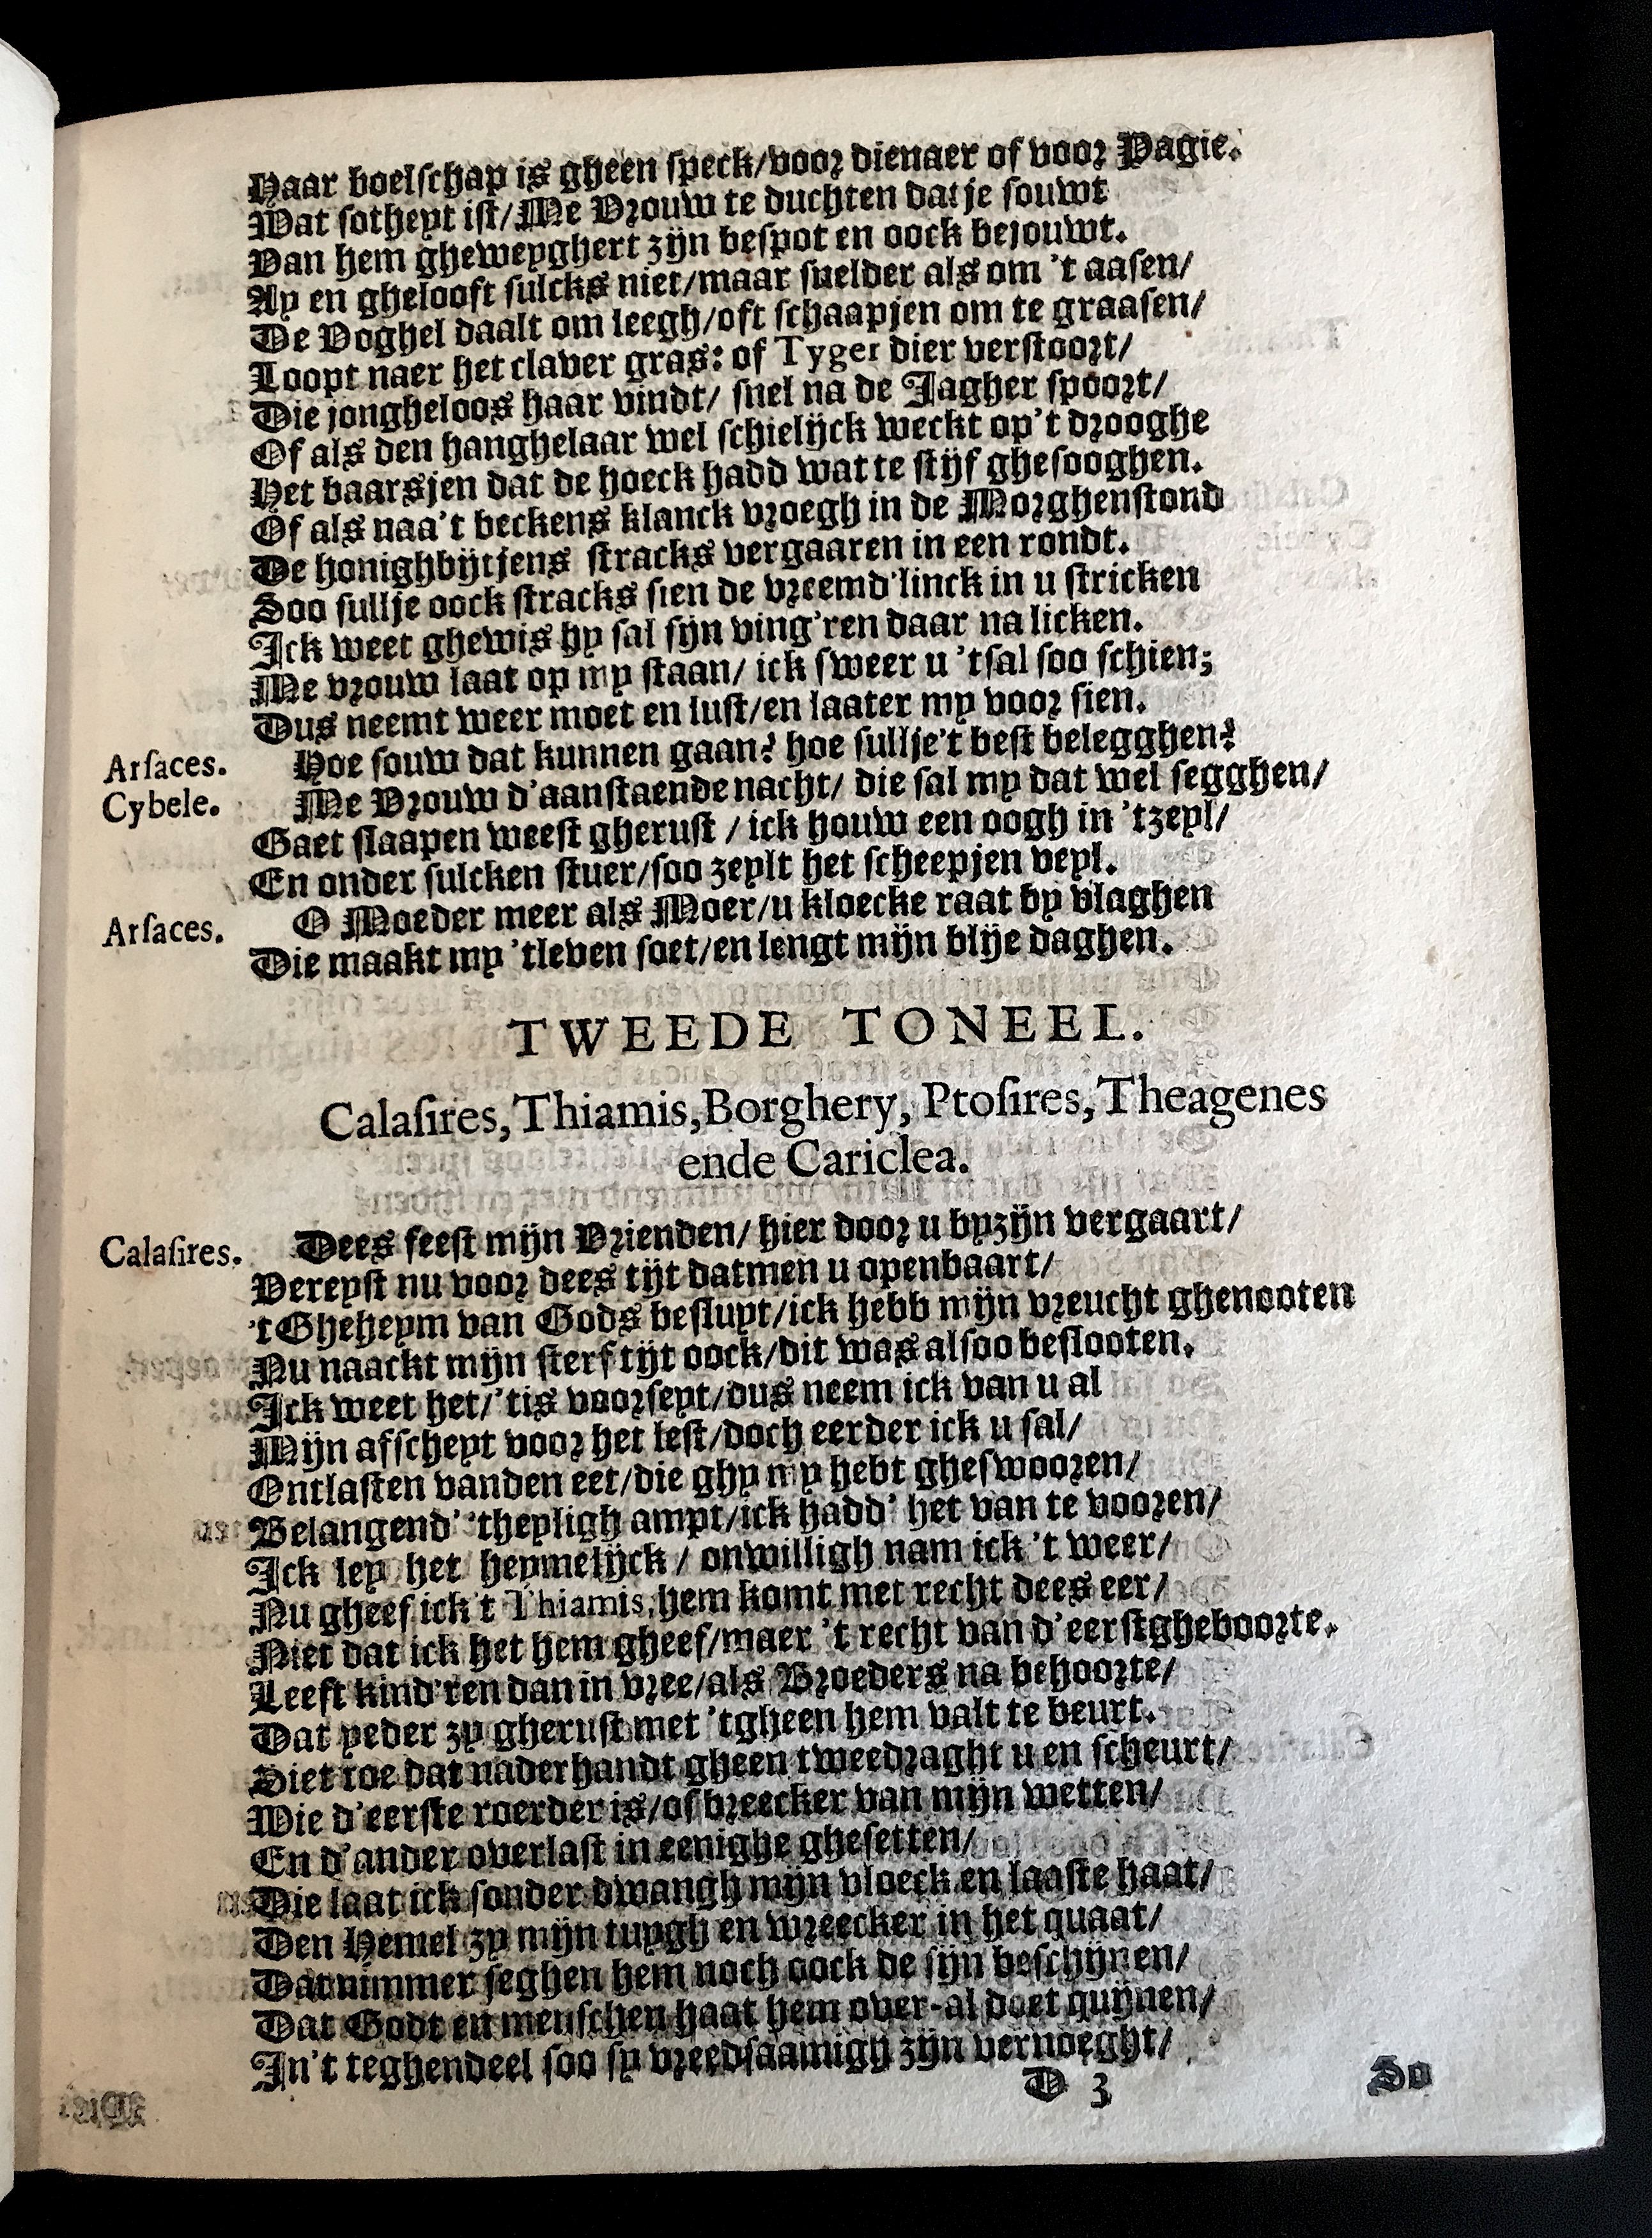 Haar boelschap is gheen speck/voor dienaer of voor Pagie.
Wat sotheyt ist/Me Vrouw te duchten datje souwt
Van hem gheweyghert zijn bespot en oock bejouwt.
Ay en ghelooft sulcks niet/maar snelder als om 't aasen/
De Voghel daalt om leegh/oft schaapjen om te graasen/
Loopt naer het claver gras: of Tyger dier verstoort/
Die jongheloos haar vindt/ snel na de Jagher spoort/
Of als den hanghelaar wel schielijck weckt op't drooghe
Het baarsjen dat de hoeck hadd wat te stijf ghesooghen.
Of als naa't beckens klanck vroegh in de Morghenstond
De honighbijtjens stracks vergaaren in een rondt.
Soo sullje oock stracks sien de vreemd'linck in u stricken
Ick weet ghewis hy sal sijn ving'ren daar na licken.
Me vrouw laat op my staan/ ick sweer u 'tsal soo schien;
Dus neemt weer moet en lust/en laater my voor sien.
Arsaces. Hoe souw dat kunnen gaan? hoe sullje't best belegghen?
Cybele. Me Vrouw d'aanstaende nacht/ die sal my dat wel segghen/
Gaet slaapen weest gherust / ick houw een oogh in 'tzeyl/
En onder sulcken stuer/soo zeylt het scheepjen veyl.
Arsaces. O Moeder meer als Moer/u kloecke raat by vlaghen
Die maakt my 'tleven soet/en lengt mijn blije daghen.
TWEEDE TONEEL.
Calasires, Thiamis, Borghery, Ptosires, Theagenes
ende Cariclea.
Calasires. Dees feest mijn Vrienden/ hier door u byzijn vergaart/
Vereyst nu voor dees tijt datmen u openbaart/
't Gheheym van Gods besluyt/ick hebb mijn vreucht ghenooten
Nu naackt mijn sterf tijt oock/dit was alsoo beslooten.
Ick weet het/'tis voorseyt/dus neem ick van u al
Mijn afscheyt voor het lest/doch eerder ick u sal/
Ontlasten vanden eet/die ghy my hebt ghesworen/
Belangend' 'theyligh ampt/ick hadd' het van te vooren/
Ick ley het heymelijck / onwilligh nam ick 't weer/
Nu gheef ick 't Thiamis, hem komt met recht dees eer/
Niet dat ick het hem gheef/maer 't recht van d'eerstgheboorte.
Leeft kind'ren dan in vree/als Broeders na behoorte/
Dat yeder zy gherust met 'tgheen hem valt te beurt.
Siet toe dat naderhandt gheen tweedraght u en scheurt/
Wie d'eerste roerder is/of breecker van mijn wetten/
En d'ander overlast in eenighe ghesetten/
Die laat ick sonder dwangh mijn vloeck en laaste haat/
Den Hemel zy mijn tuygh en wreecker in het quaat/
Dat nimmer seghen hem noch oock de sijn beschijnen/
Dat Godt en menschen haat hem over-al doet quijnen/
In't teghendeel soo sy vreedsaamigh zijn vernoeght/
D 3 So